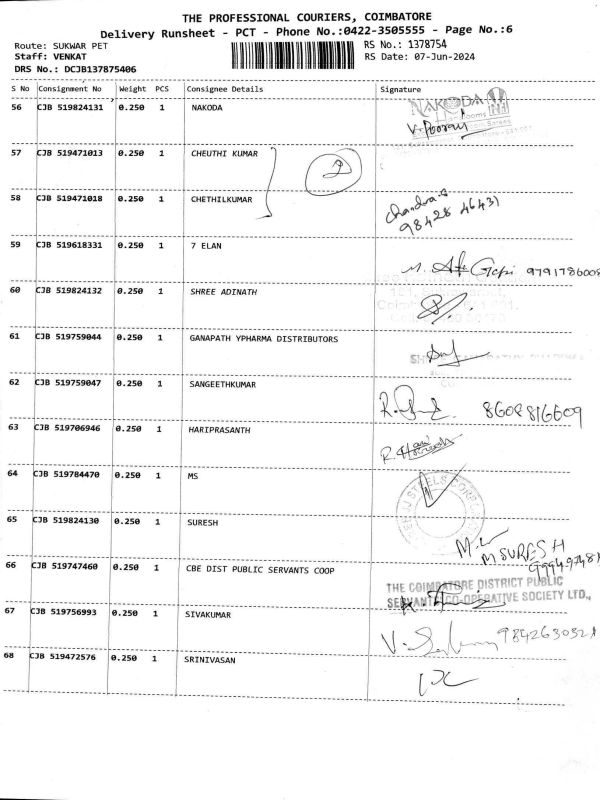 THE PROFESSIONAL COURIERS, COIMBATORE
Delivery Runsheet - PCT - Phone No.:0422-3505555 - Page No.:6
Route: SUKWAR PET RS No.: 1378754
Staff: VENKAT RS Date: 07-Jun-2024
DRS No.: DCJB137875406
S No Consignment No Weight PCS Consignee Details Signature
56 CJB 519824131 0.250 1 NAKODA NAKODA
V. Poorani
57 CJB 519471013 0.250 1 CHEUTHI KUMAR
2
58 CJB 519471018 0.250 1 CHETHILKUMAR Chandra.S
98428 46431
59 CJB 519618331 0.250 1 7 ELAN
M. Gopi 9791786008
60 CJB 519824132 0.250 1 SHREE ADINATH
61 CJB 519759044 0.250 1 GANAPATH YPHARMA DISTRIBUTORS
62 CJB 519759047 0.250 1 SANGEETHKUMAR
8608816609
63 CJB 519706946 0.250 1 HARIPRASANTH
64 CJB 519784470 0.250 1 MS
65 CJB 519824130 0.250 1 SURESH
M SURESH
66 CJB 519747460 0.250 1 CBE DIST PUBLIC SERVANTS COOP
THE COIMBATORE DISTRICT PUBLIC
SERVANTS CO-OPERATIVE SOCIETY LTD.,
67 CJB 519756993 0.250 1 SIVAKUMAR
68 CJB 519472576 0.250 1 SRINIVASAN